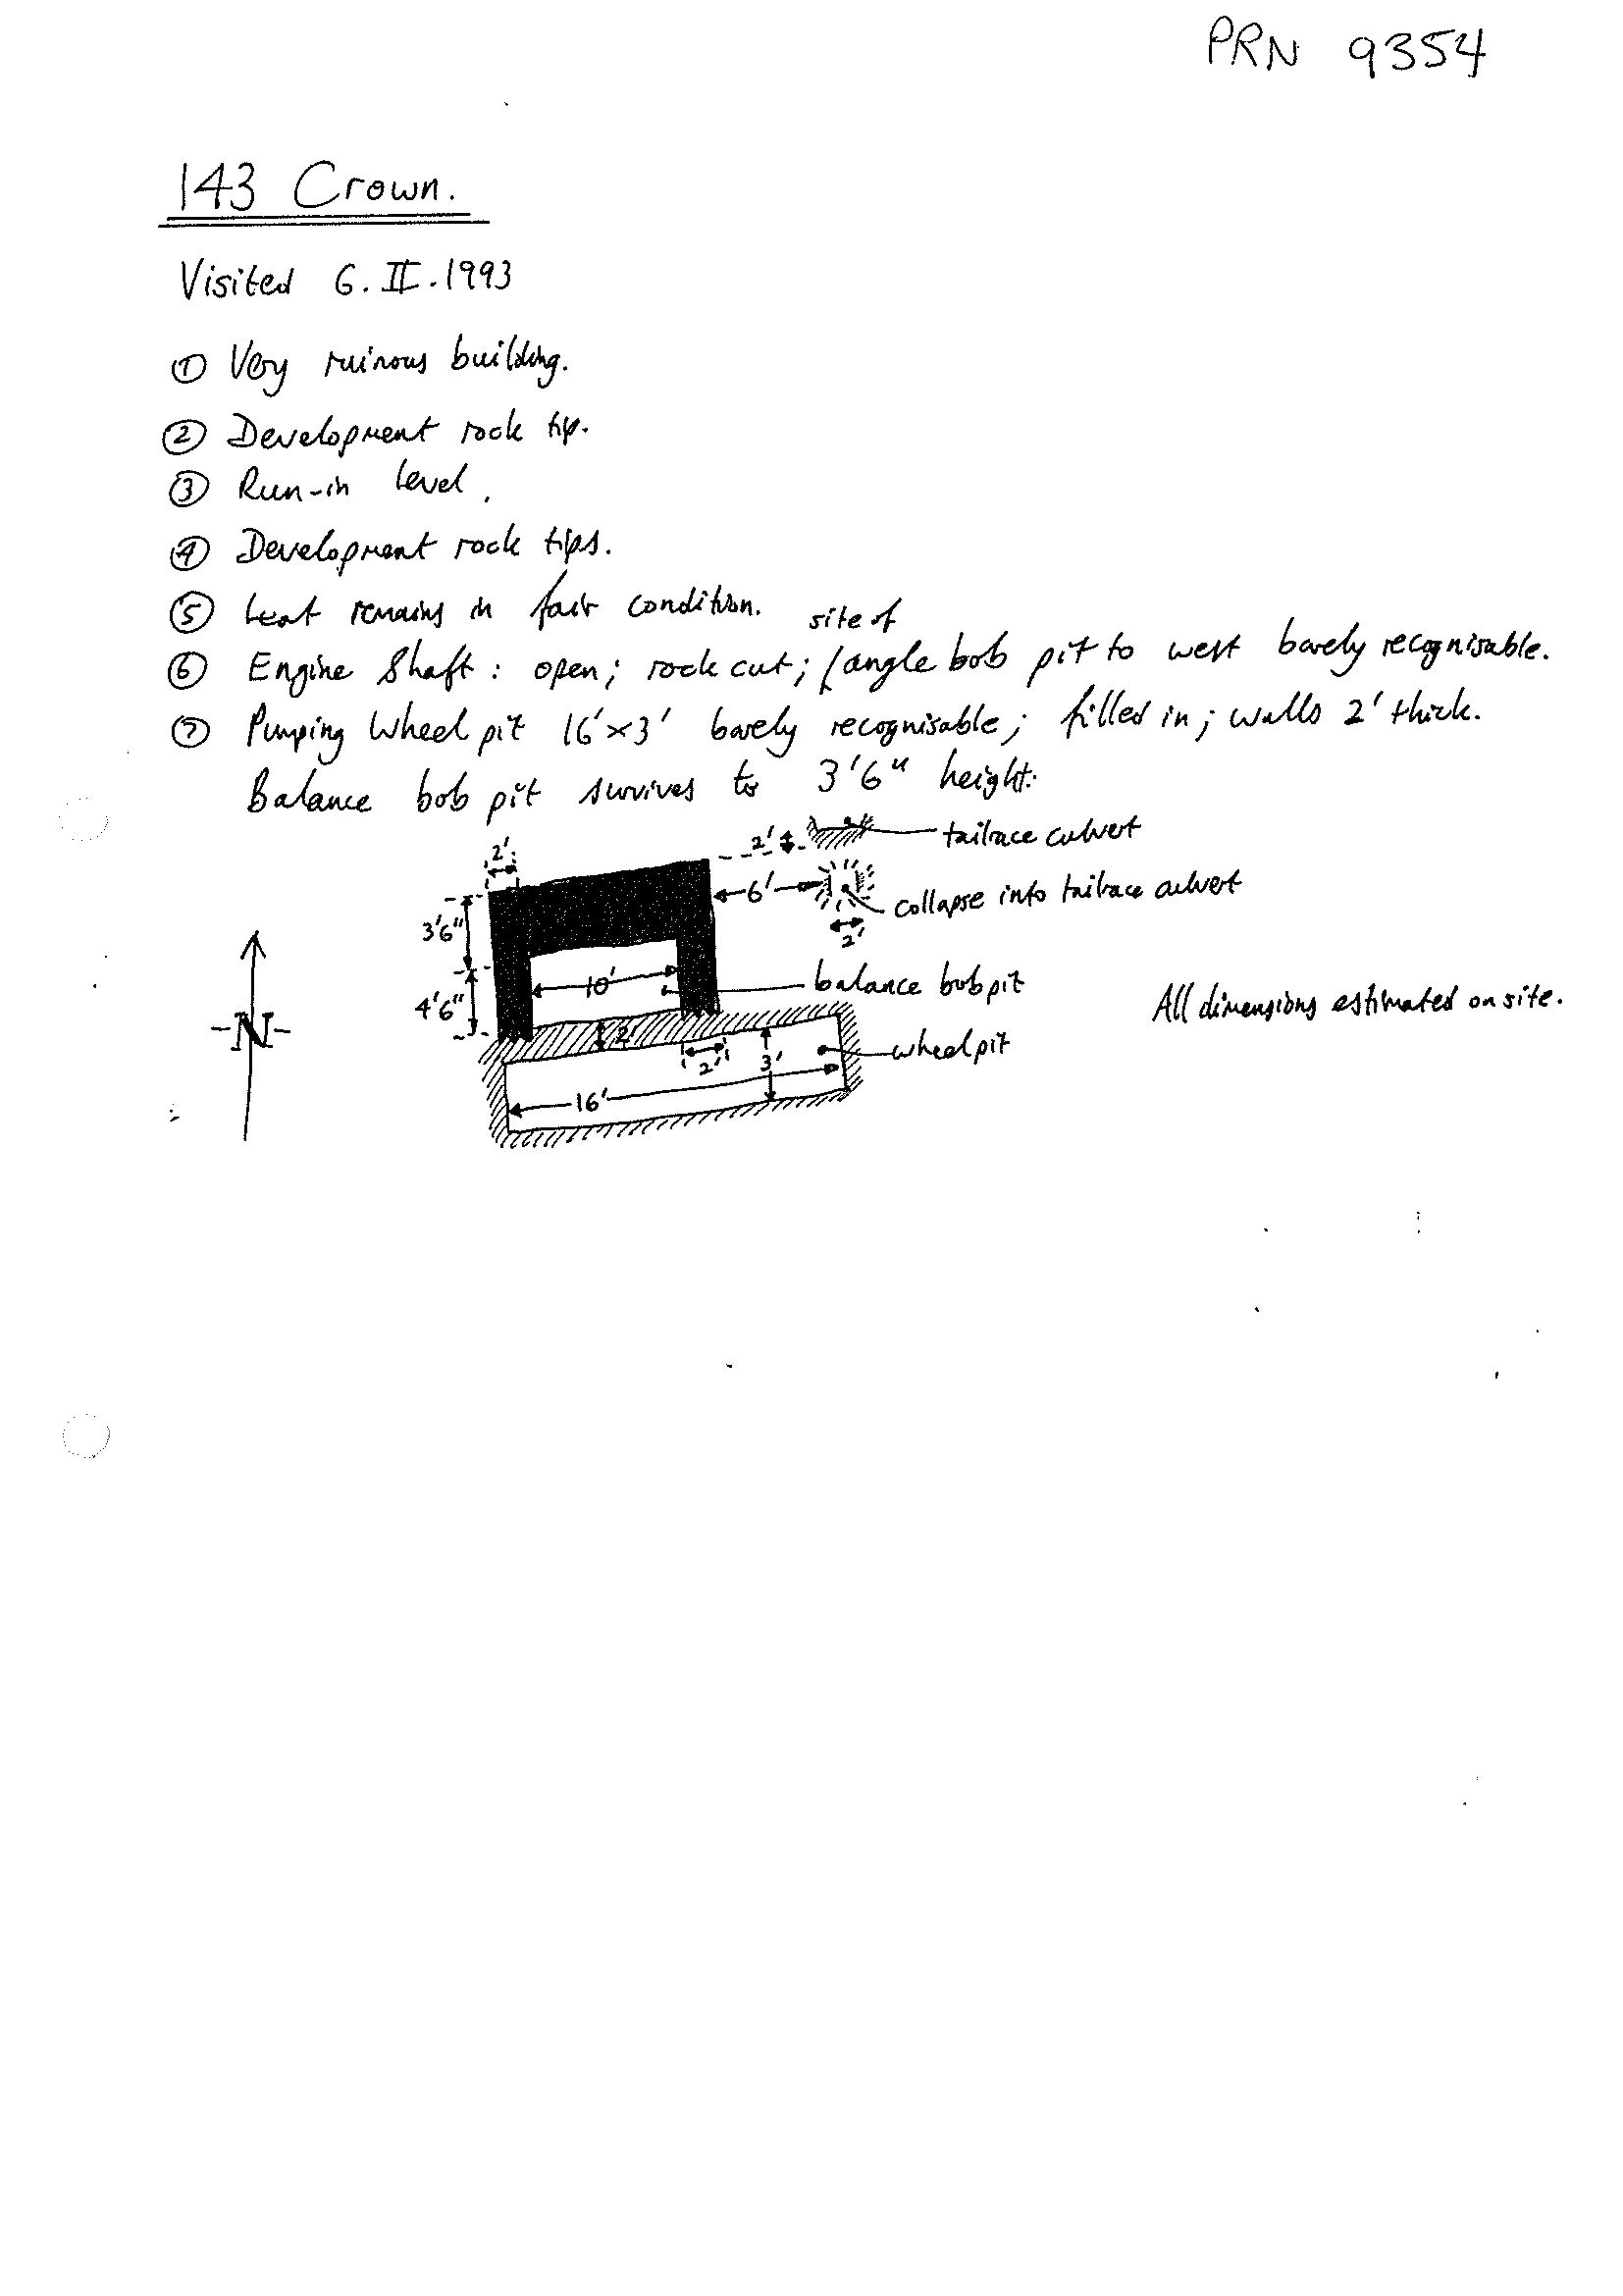 PRN 9354
143 Crown.
Visited 6.II.1993
① Very ruinous building.
② Development rock tip.
③ Run-in level.
④ Development rock tips.
⑤ Leat remains in fair condition.
site of
⑥ Engine Shaft: open; rock cut; /angle bob pit to west barely recognisable.
⑦ Pumping Wheel pit 16'×3' barely recognisable; filled in; walls 2' thick.
Balance bob pit survives to 3'6" height.
2'
2'
tailrace culvert
6'
collapse into tailrace culvert
3'6"
2'
10'
balance bob pit
4'6"
All dimensions estimated on site.
-N-
2'
2'
3'
wheelpit
16'